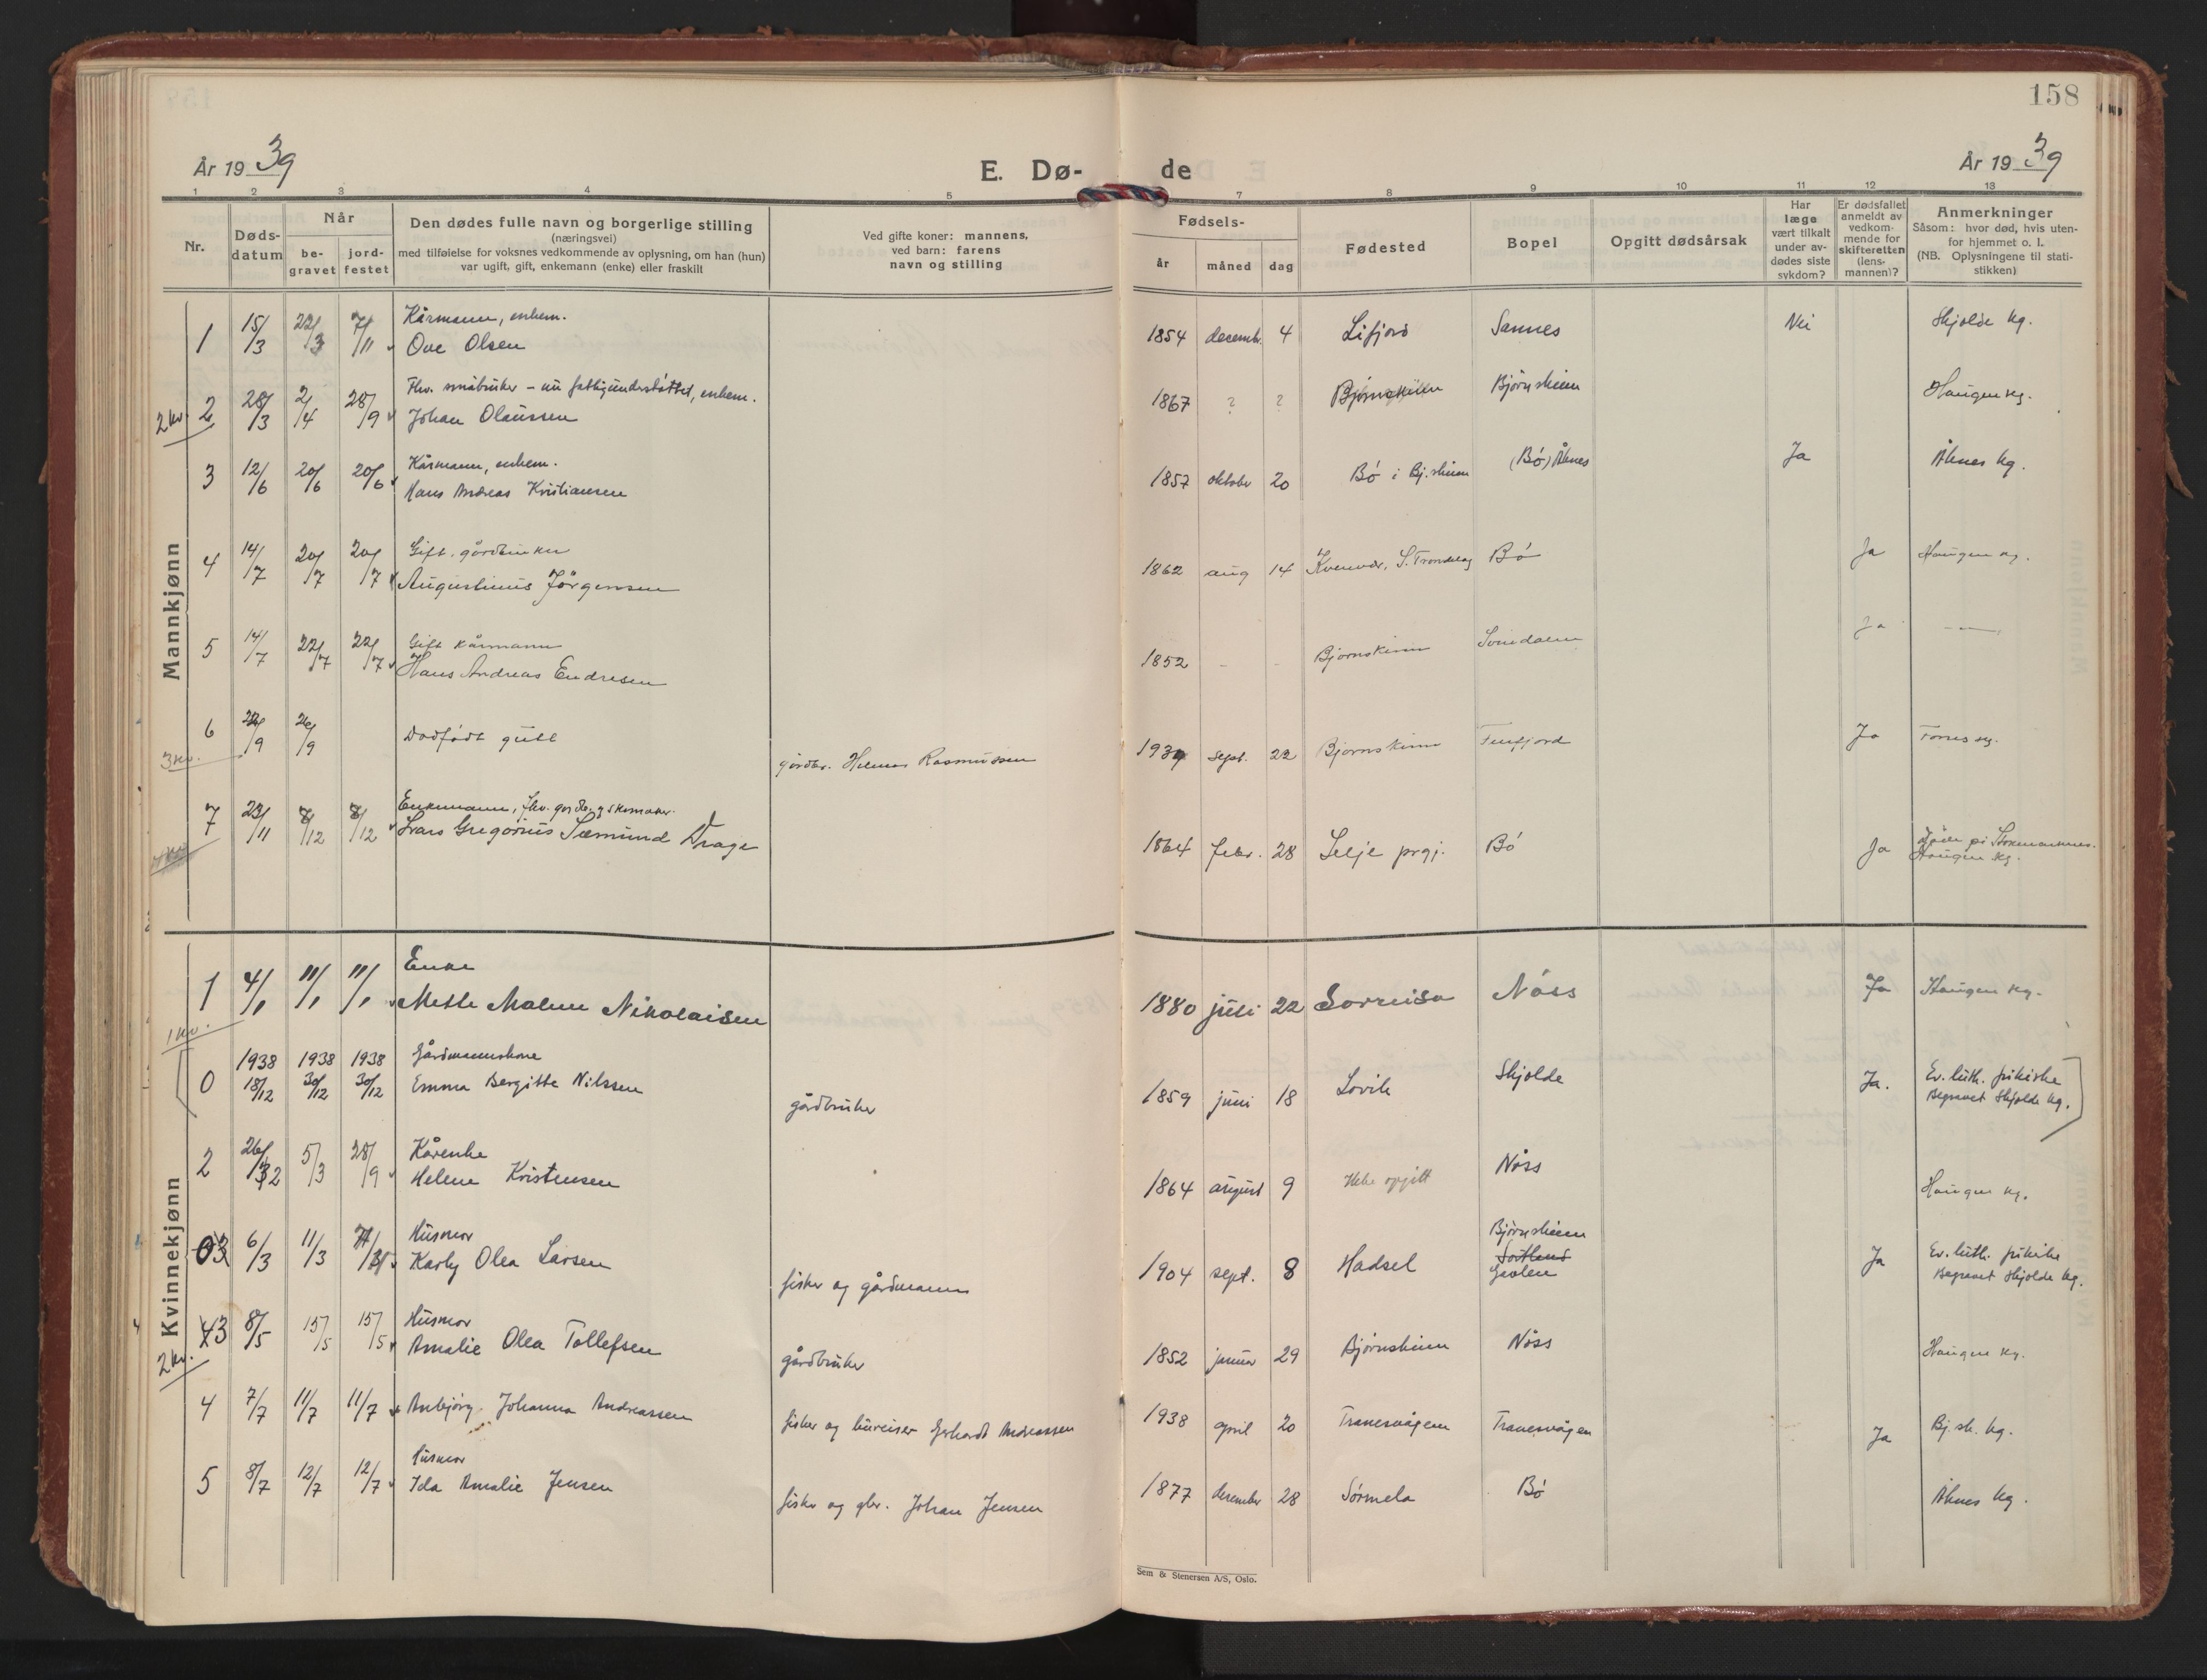 158
År 19 39
E. Dø-
de
År 19 39
1 2 3 4 5 7 8 9 10 11 12 13
Nr.
Døds-
datum
Når
be-
gravet
jord-
festet
Den dødes fulle navn og borgerlige stilling
(næringsvei)
med tilføielse for voksnes vedkommende av oplysning, om han (hun)
var ugift, gift, enkemann (enke) eller fraskilt
Ved gifte koner: mannens,
ved barn: farens
navn og stilling
Fødsels-
år
måned
dag
Fødested
Bopel
Opgitt dødsårsak
Har
læge
vært tilkalt
under av-
dødes siste
sykdom?
Er dødsfallet
anmeldt av
vedkom-
mende for
skifteretten
(lens-
mannen)?
Anmerkninger
Såsom: hvor død, hvis uten-
for hjemmet o. l.
(NB. Oplysningene til stati-
stikken)
Mannkjønn
1 15/3 22/3 7/11 Kårmann, enkem.
Ove Olsen 1854 decemb. 4 Lifjord Sannes Nei Skjolde kg.
2 kv. 2 28/3 2/4 28/9 Fhv. småbruker - nu fattigunderstøttet, enkem.
Johan Olaussen 1867 ? ? Bjørnskinn Bjørnskinn Haugen kg.
3 12/6 20/6 20/6 Kårmann, enkem.
Hans Andreas Kristiansen 1857 oktober 20 Bø i Bj.skinn (Bø) Åknes Ja Åknes kg.
4 14/7 20/7 20/7 Gift. gårdbruker
Augustinus Jörgensen 1862 aug 14 Kvenvær, S. Trondelag Bø Ja Haugen kg.
5 14/7 22/7 22/7 Gift kårmann
Hans Andreas Endresen 1852 - - Bjørnskinn Ja
6 22/9 26/9 Dødfødt gutt
3 kv. gårdbr. Helmer Rasmussen 1939 sept. 22 Bjørnskinn Finfjord Ja
7 23/11 8/12 8/12 Enkemann, fhv. gårdbr. og skomaker.
Lars Gregorius Sæmund Drage 1864 febr. 28 Selje prgj. Bø Ja Døde på Stokmarknes.
Haugen kg.
Kvinnekjønn
1 4/1 11/1 11/1 Enke
Mette Malene Nikolaisen 1880 juli 22 Sorreisa Nøss Ja Haugen kg.
1 kv.
0 1938 18/12 1938 30/12 1938 30/12 Gårdmannskone
Emma Bergitte Nilssen gårdbruker 1859 juni 18 Lovik Skjolde Ja. Ev. luth. frikirke
Begravet Skjolde kg.
2 26/2 5/3 28/9 Kårenke
Helene Kristensen 1864 august 9 Ikke opgitt Nøss Haugen kg.
03 6/3 11/3 Husmor
Karly Olea Larsen fisker og gårdmann 1904 sept. 8 Hadsel Bjørnskinn
Ja Ev. luth. frikirke
Begravet Skjolde kg.
43 8/5 15/5 15/5 Husmor
Amalie Olea Tollefsen gårdbruker 1852 januar 29 Bjørnskinn Nøss Haugen kg.
2 kv.
4 7/7 11/7 11/7 Anbjørg Johanna Andreassen fisker og bureiser Gerhardt Andreassen 1938 april 20 Tranesvågen Tranesvågen Ja Bj.sk. kg.
5 8/7 12/7 12/7 Husmor
Ida Amalie Jensen fisker og gbr. Johan Jensen 1877 desember 28 Sørmela Bø Åknes kg.
Sem & Stenersen A/S, Oslo.